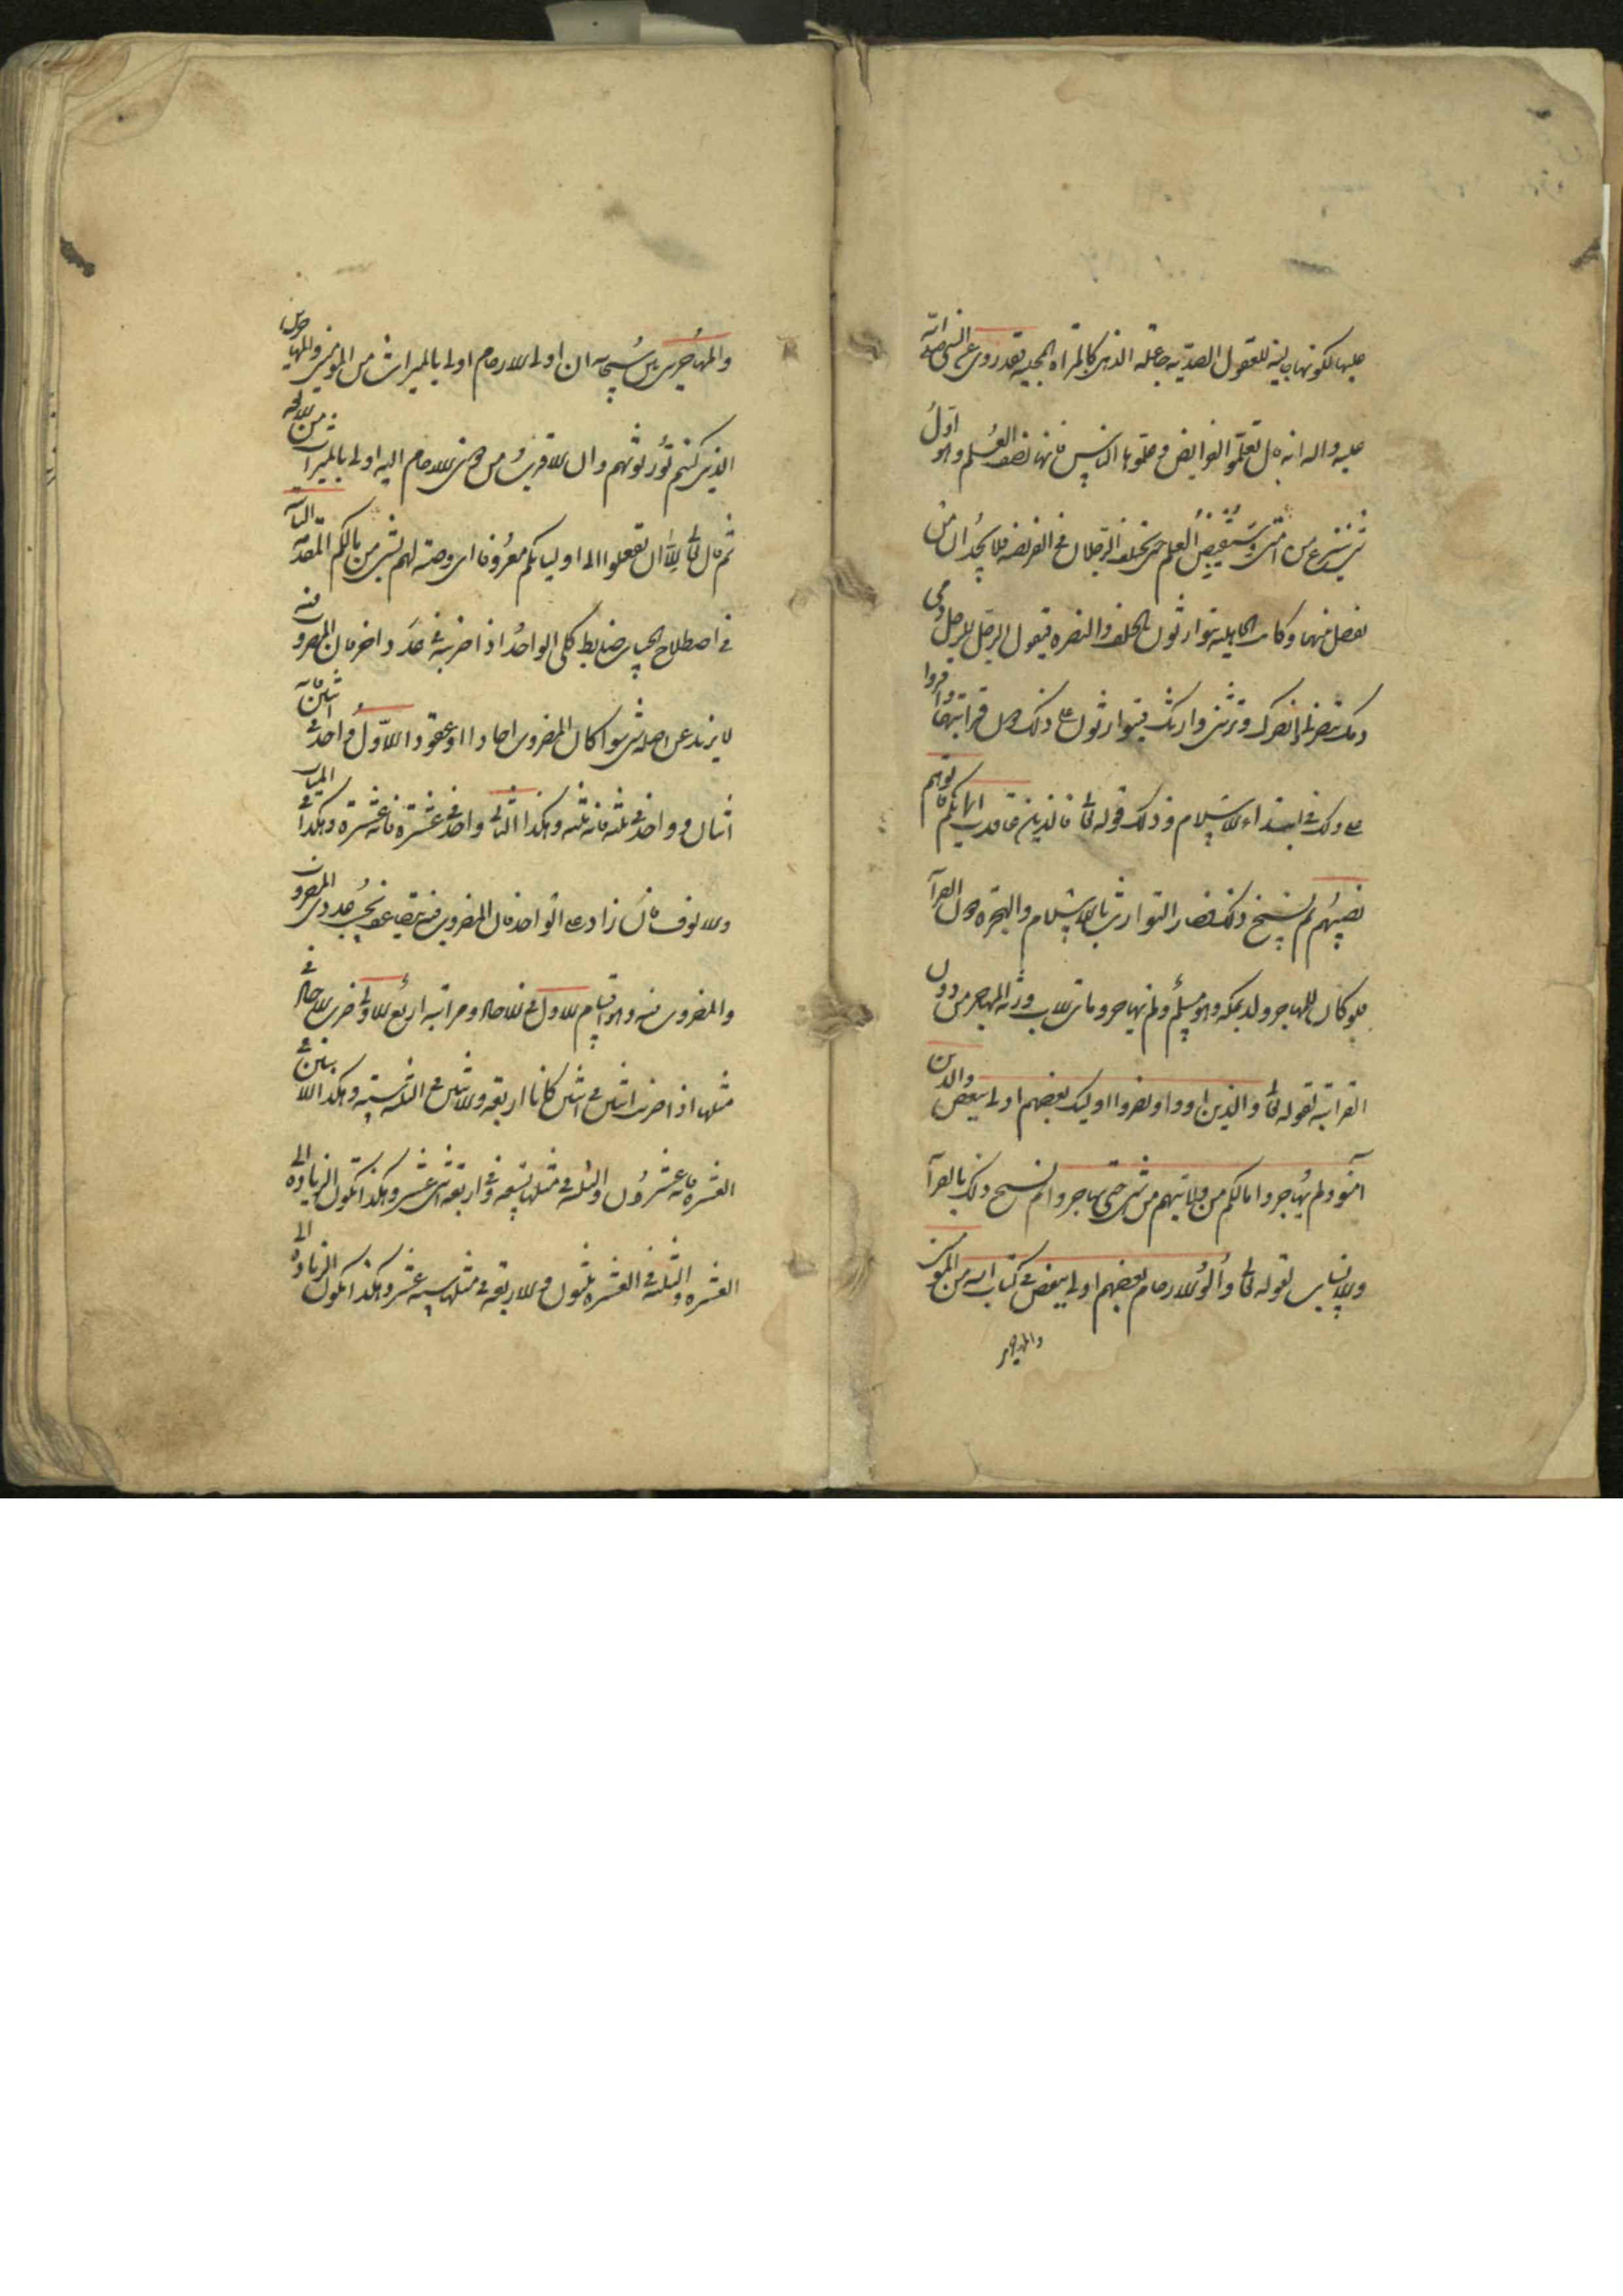 عليها لكونها جالية للعقول الصدية جاعلة الذهن كالمرآة المجلية فقد روى عن النبي صلى الله
عليه واله انه قال تعلموا الفرايض وعلموها الناس فانها نصف العلم وهو اول
شي ينتزع من امتي وسيقبض العلم حتى يختلف الرجلان في الفريضة فلا يجدان من
يفصل بينهما وكانت الجاهلية يتوارثون بالحلف والنصرة فيقول الرجل للرجل دمي
دمك تنصرني وانصرك وترثني وارثك فيتوارثون على ذلك دون قرابتهما واقروا
على ذلك في ابتداء الاسلام وذلك قوله تعالى فالذين عاقدت ايمانكم فاتوهم
نصيبهم ثم نسخ ذلك فصار التوارث بالاسلام والهجرة دون القرابة
فلو كان للمهاجر ولد بمكة وهو مسلم ولم يهاجر ومات الاب ورثه المهاجر من دون
القرابة لقوله تعالى والذين اووا ونصروا اوليك بعضهم اوليا بعض والذين
آمنوا ولم يهاجروا مالكم من ولايتهم من شي حتى يهاجروا ثم نسخ ذلك بالقرابة
والانساب لقوله تعالى وأولوا الارحام بعضهم اولى ببعض في كتاب الله من المومنين
والمهاجرين
والمهاجرين بين سبحانه ان اولى الارحام اولى بالميراث من المومنين والمهاجرين
الذين كنتم تورثونهم وان الاقرب من ذوى الارحام اليه اولى بالميراث من الابعد
ثم قال تعالى الا ان تفعلوا الى اوليايكم معروفا اى وصية لهم بشي من مالكم المقدمة الثانية
في اصطلاح الحساب ضابط كلي الواحد اذا ضربته في عدد اخر فان المضروب فيه
لا يزيد عن اصله شي سوا كان المضروب احادا او عقودا الاول واحد في اثنين فانه
اثنان وواحد في ثلثة فانه ثلثة وهكذا الثاني واحد في عشرة فانه عشرة وهكذا في الميات
والالوف فان زاد على الواحد فان المضروب فيه يتضاعف بحسب عدد المضروب
والمضروب فيه وهو اقسام الاول في الاحاد ومراتبه اربع الاولى ضرب الاحاد في
مثلها اذا ضربت اثنين في اثنين كانا اربعة والاثنين في الثلثة ستة وهكذا الاثنين في
العشرة فانه عشرون والثلثة في مثلها تسعة وفي اربعة اثنى عشر وهكذا تكون الزيادة الى
العشرة والثلثة في العشرة ثلثون والاربعة في مثلها ستة عشر وهكذا تكون الزيادة الى